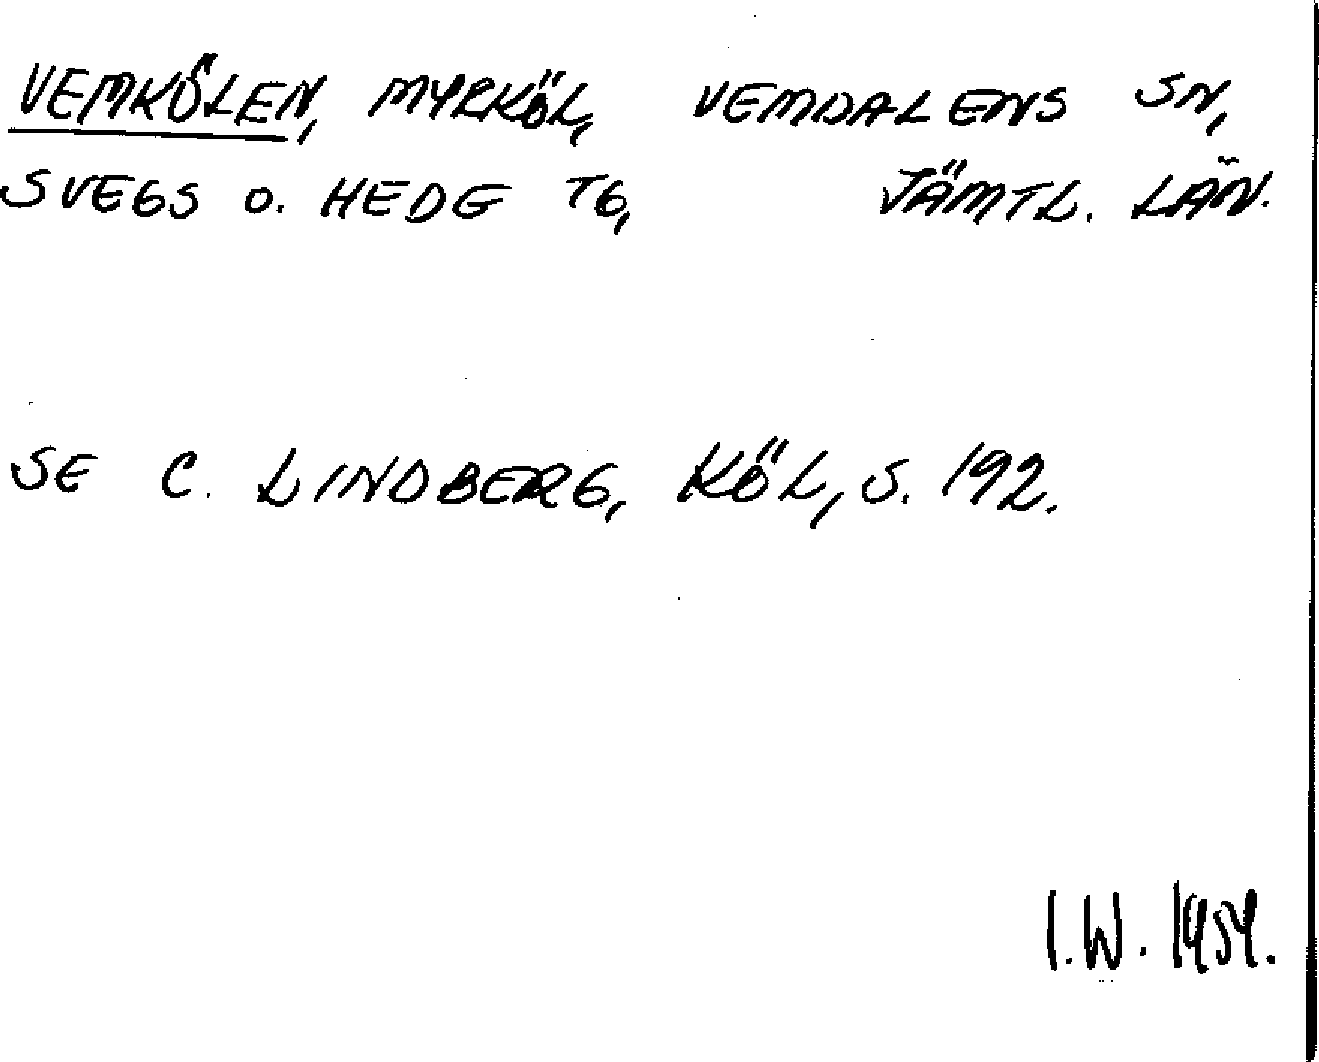 VEMKÖLEN, MYRKÖL, VEMDALENS SN,
SVEGS O. HEDE TG, JÄMTL. LÄN.
SE C. LINDBERG, KÖL, S. 192.
I.W. 1959.